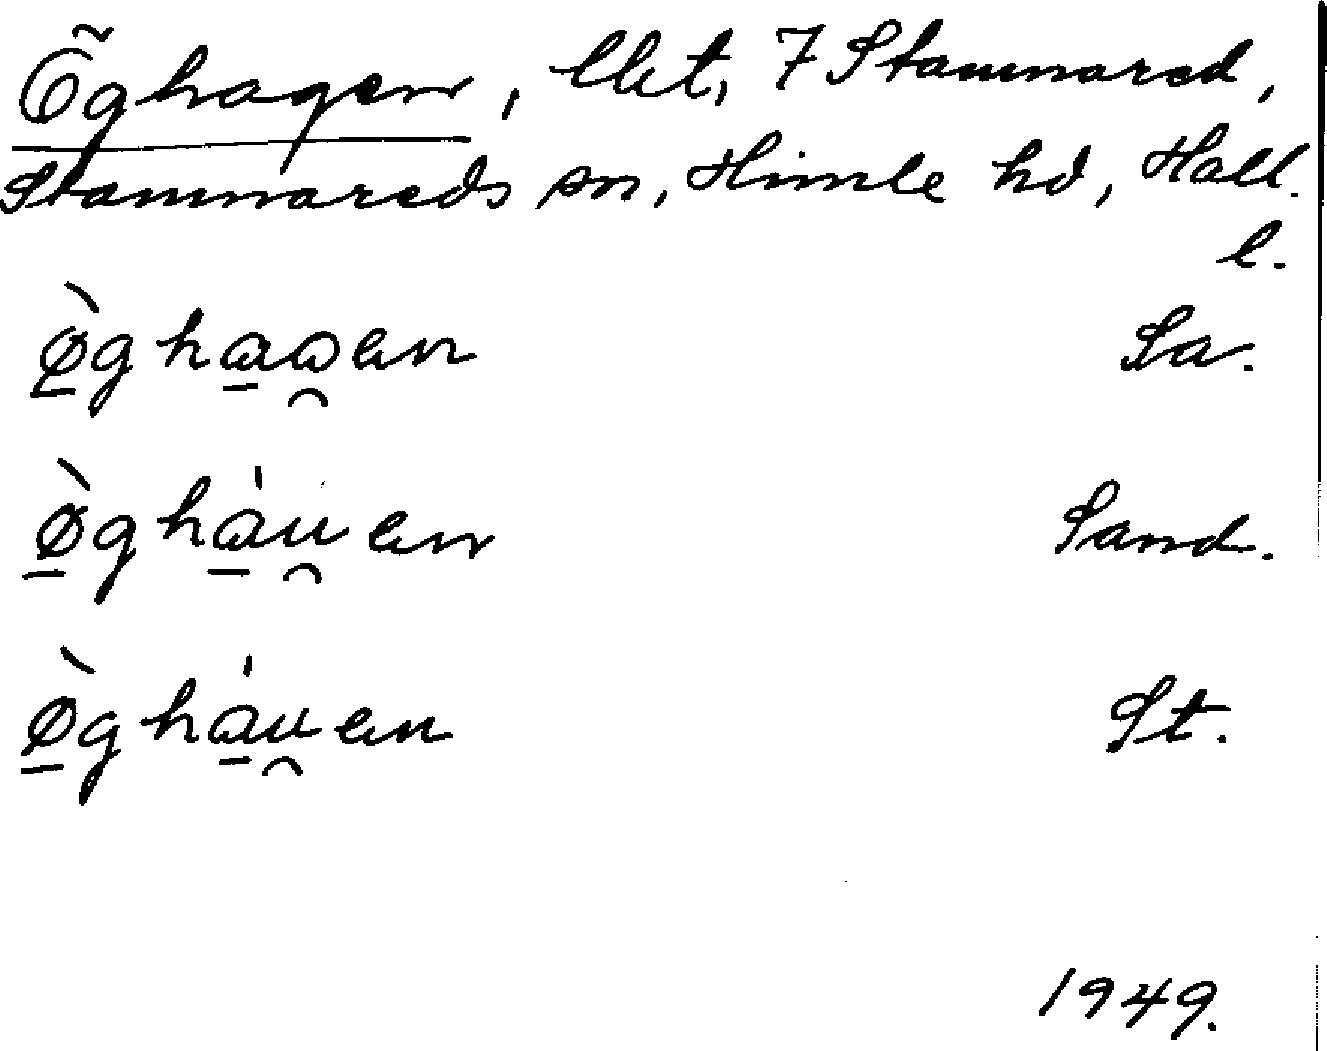 Öghagen, lht, 7 Stamnared,
Stamnareds sn, Himle hd, Hall.
l.
Ø̠̀gha̠ωen Sa.
Ø̠̀ghȧ̠u̯en Sand.
Ø̠̀ghȧ̠u̯en St.
1949.